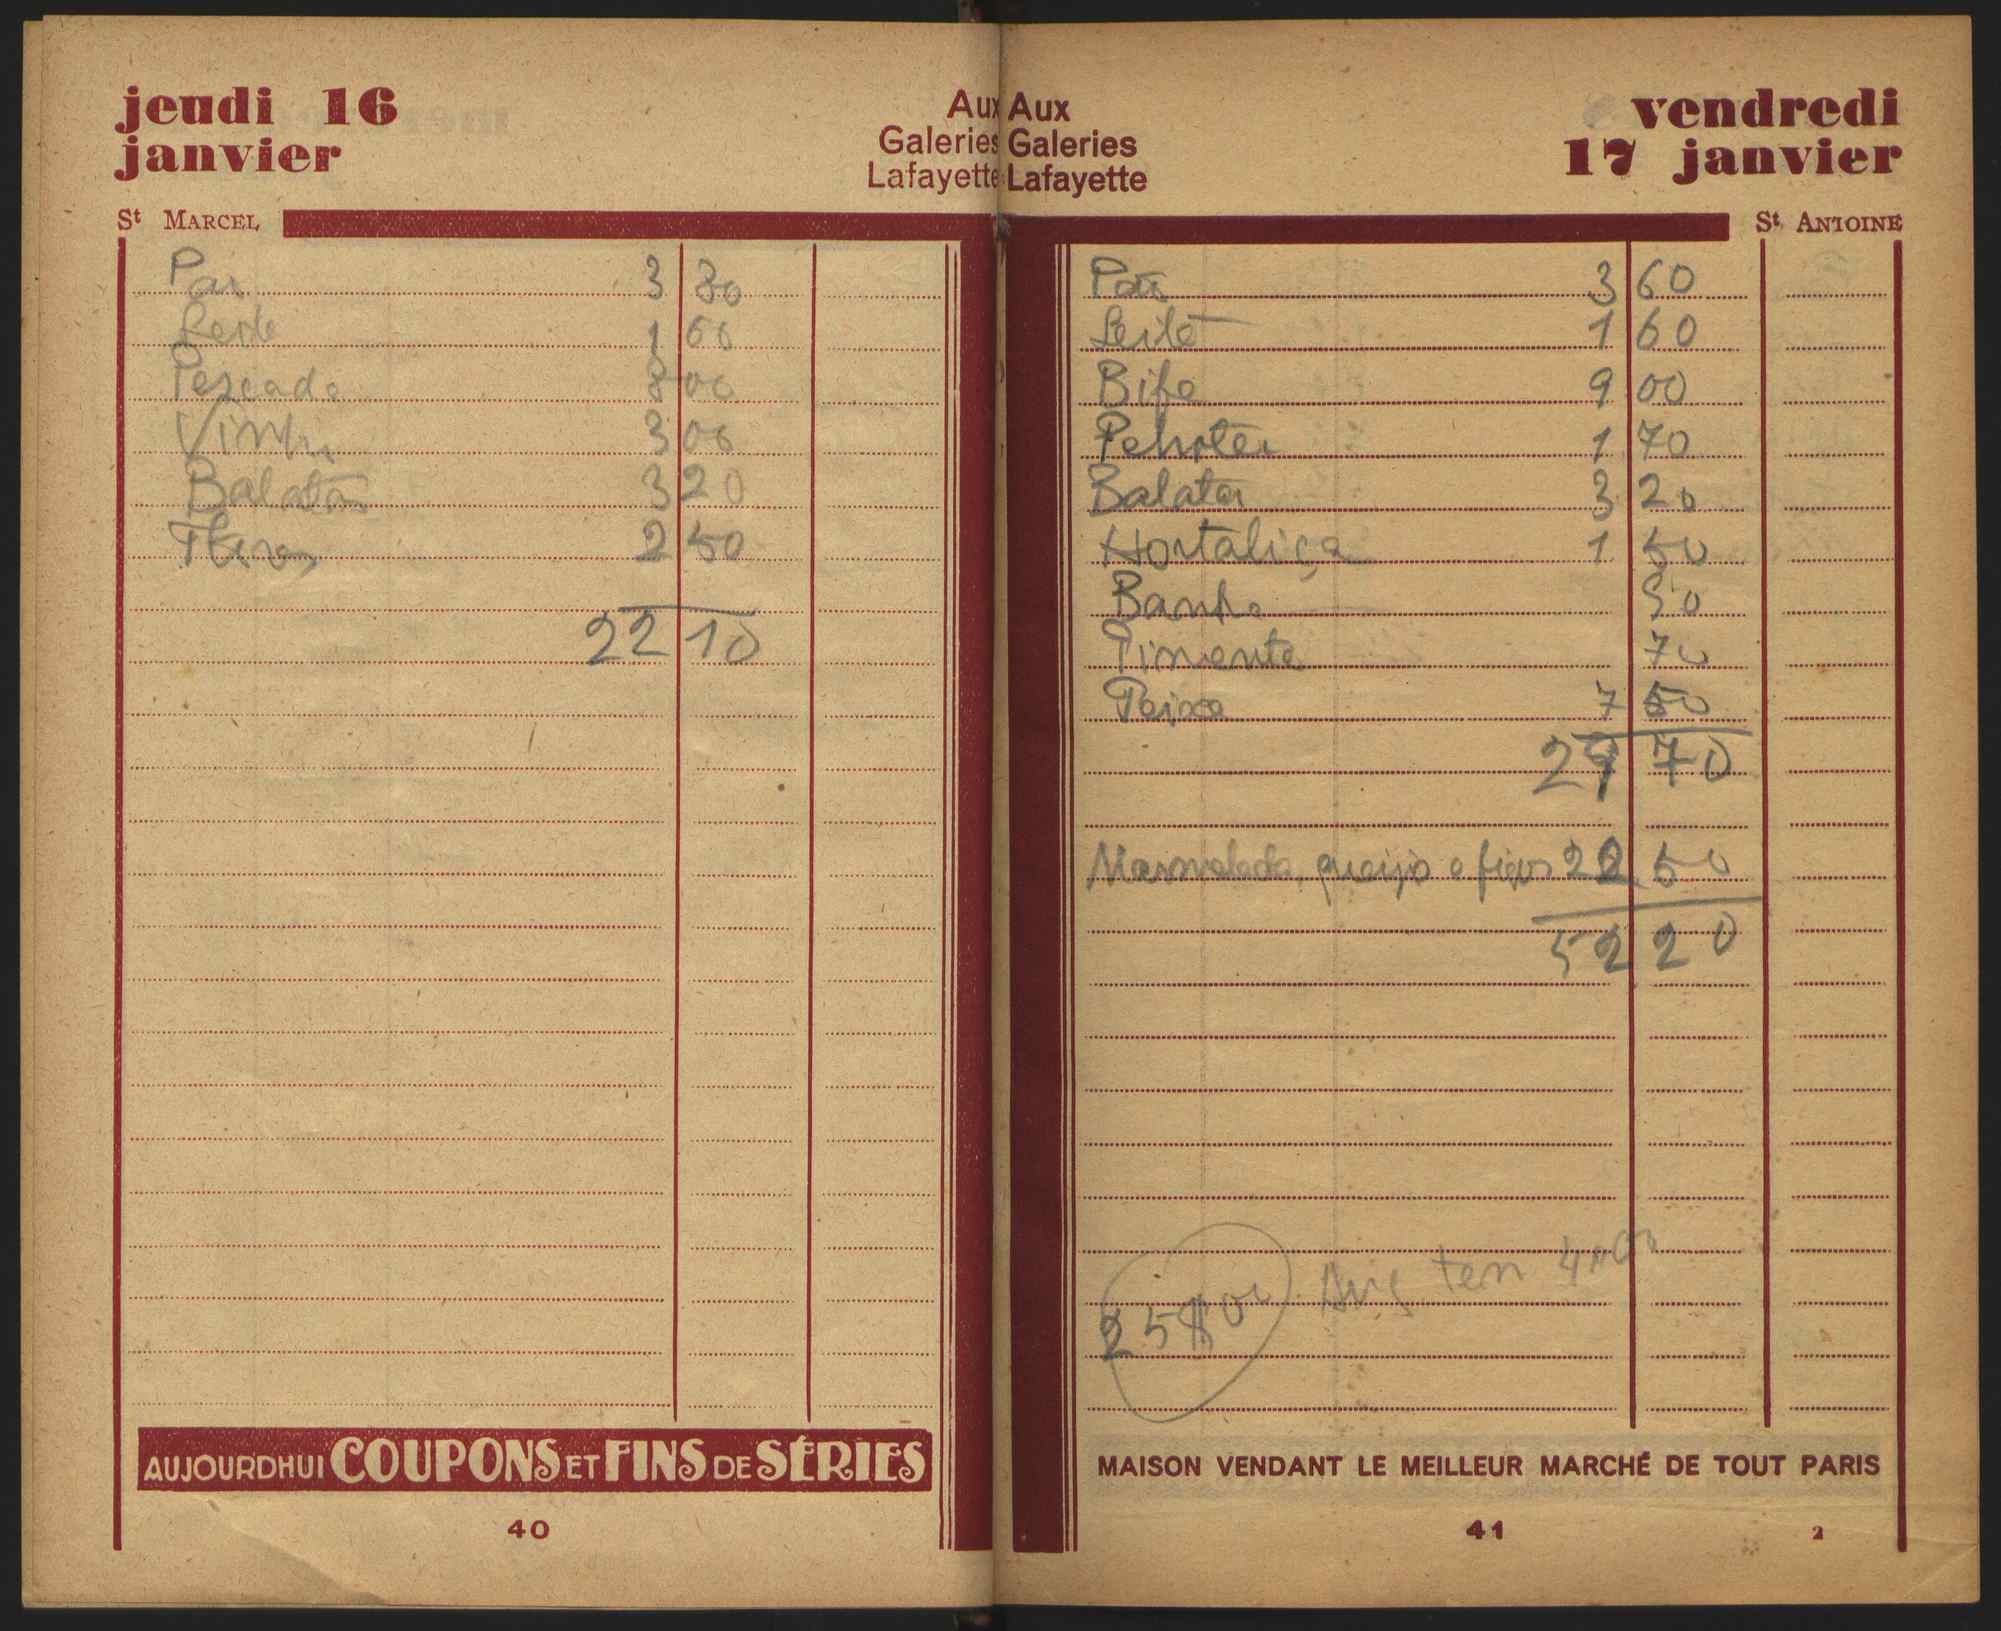 jeudi 16
janvier
Aux
Galeries
Lafayette
St MARCEL
Pão 3 80
Leite 1 60
Pescada 8 00
Vinho 3 00
Batatas 3 20
2 50
22 10
AUJOURDHUI COUPONS ET FINS DE SÉRIES
40
Aux
Galeries
Lafayette
vendredi
17 janvier
St ANTOINE
Pão 3 60
Leite 1 60
Bife 9 00
1 70
Batatas 3 20
Hortaliça 1 50
Banho 90
Pimenta 70
Peixe 7 50
29 70
Marmelada, queijo e figos 22 50
52 20
ten
25$00
MAISON VENDANT LE MEILLEUR MARCHÉ DE TOUT PARIS
41
2